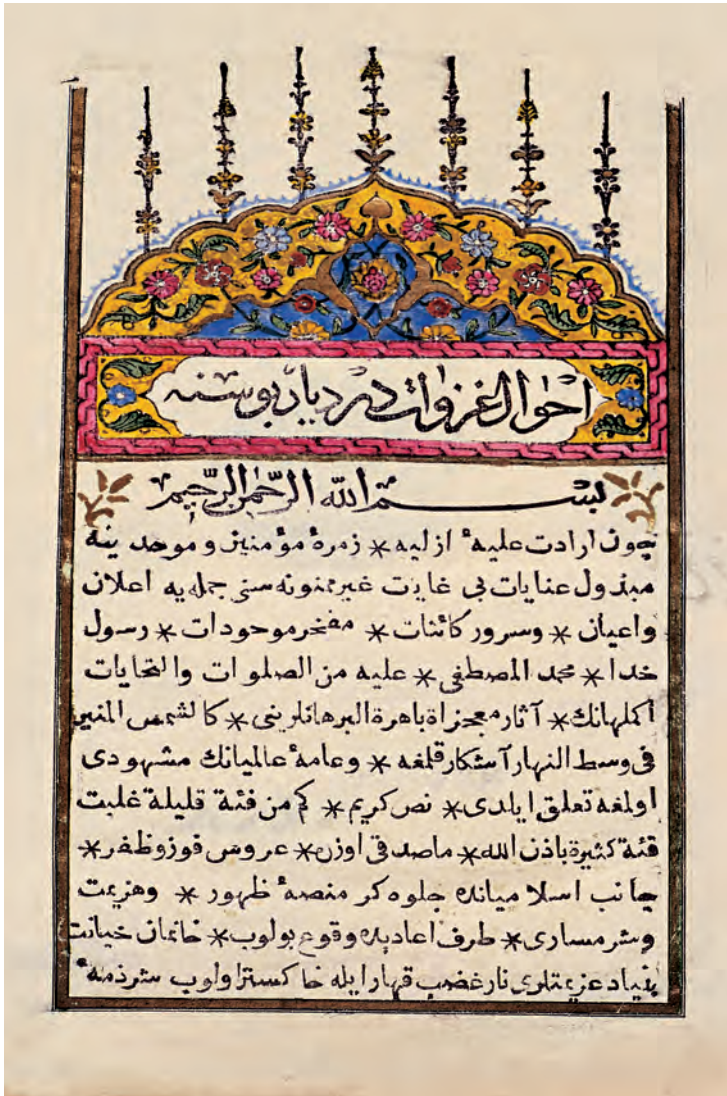 احوال غزوات در ديار بوسنه
بسم الله الرحمن الرحيم
چون ارادت عليهٔ ازليه * زمرهٔ مؤمنين و موحدينه
مبذول عنايات بى غايت غير ممنونه سنى جمله يه اعلان
واعيان * وسرور كائنات * مفخر موحودات * رسول
خدا * محمد المصطفى * عليه من الصلوات والتحايات
اكملهانك * آثار معجزاة باهرة البرهانلرينى * كالشمس المنير
فى وسط النهار آشكار قلغه * وعامهٔ عالميانك مشهودى
اولغه تعلق ايلدى * نص كريم * كم من فئة قليلة غلبت
فئة كثيرة باذن الله * ماصدقى اوزره * عروس فوز وظفر *
جانب اسلاميانده جلوه كر منصهٔ ظهور * وهزيمت
وشرمسارى * طرف اعاديده وقوع بولوب * خانمان خيانت
بنياد عزيمتلرى نار غضب قهار ايله خاكستر اولوب شرذمهٔ